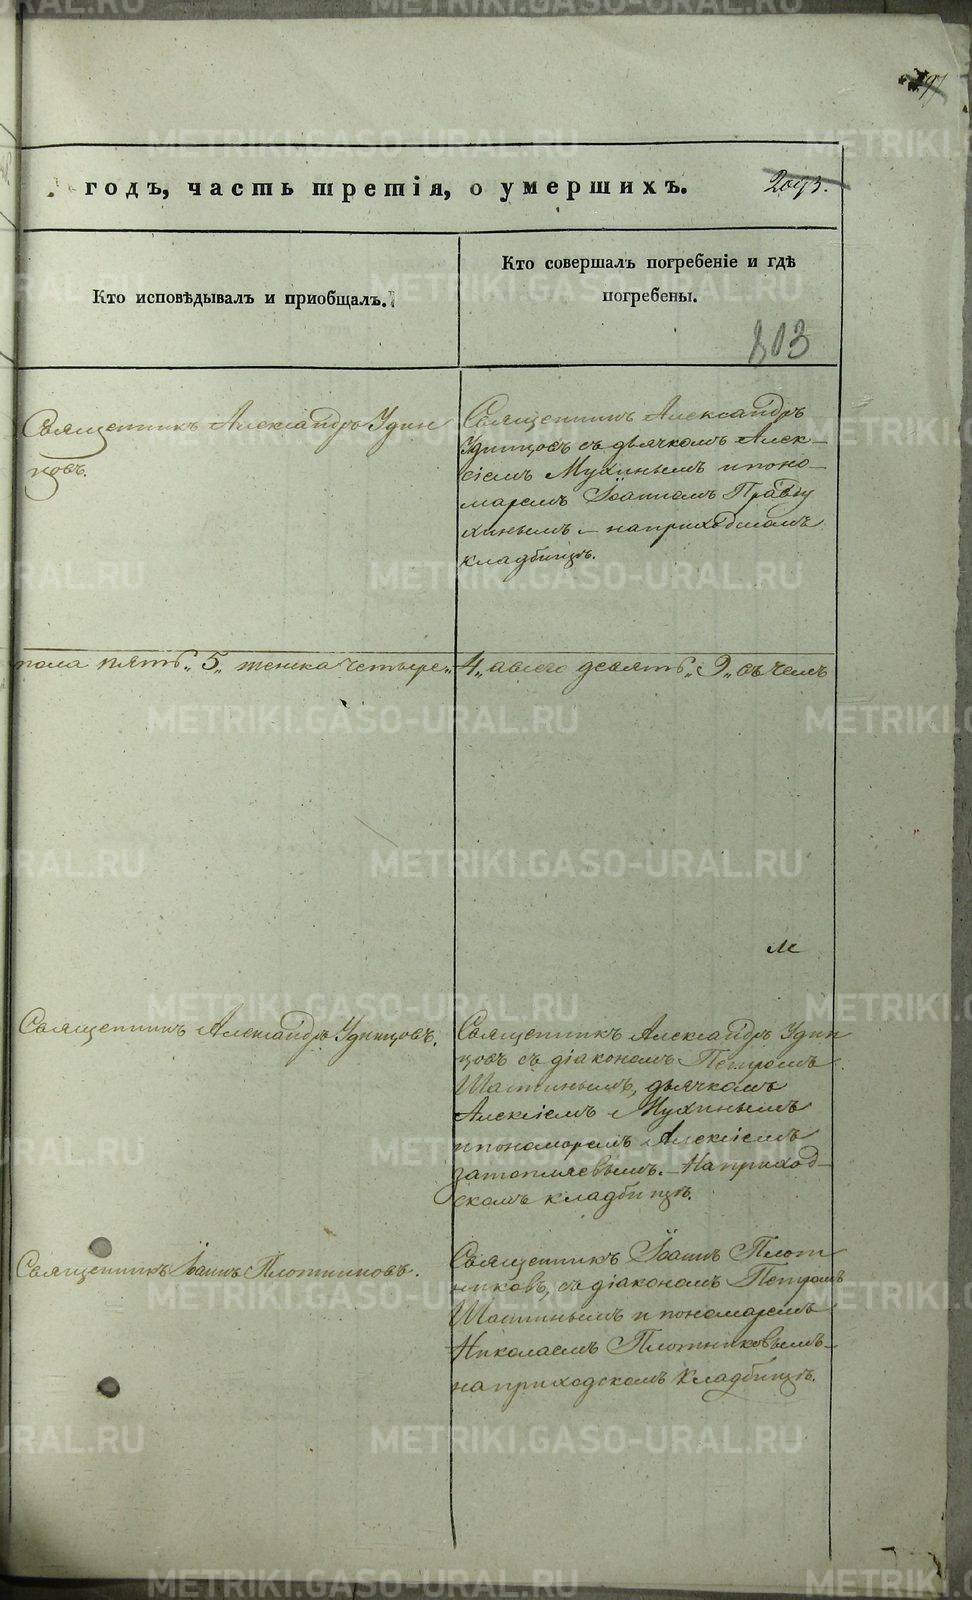 годъ, часть третія, о умершихъ.
2093.
Кто исповѣдывалъ и приобщалъ.
Кто совершалъ погребеніе и гдѣ
погребены.
803
Священникъ Александръ Удин
цовъ.
Священникъ Александръ
Удинцовъ съ дьячкомъ Алек-
сіемъ Мухинымъ и поно-
маремъ Іоанномъ Правду
хинымъ – на приходскомъ
кладбищѣ.
пола пять „5„ женска четыре „4„ а всего девять „9„ въ чемъ
Священникъ Александръ Удинцовъ.
Священникъ Александръ Удин
цовъ съ діакономъ Петромъ
Шастинымъ, дьячкомъ
Алексіемъ Мухинымъ
и пономаремъ Алексіемъ
Затопляевымъ. – На приход-
скомъ кладбищѣ.
Священникъ Іоаннъ Плотниковъ.
Священникъ Іоаннъ Плот
никовъ, съ діакономъ Петромъ
Шастинымъ и пономаремъ
Николаемъ Плотниковымъ –
на приходскомъ кладбищѣ.
METRIKI.GASO-URAL.RU